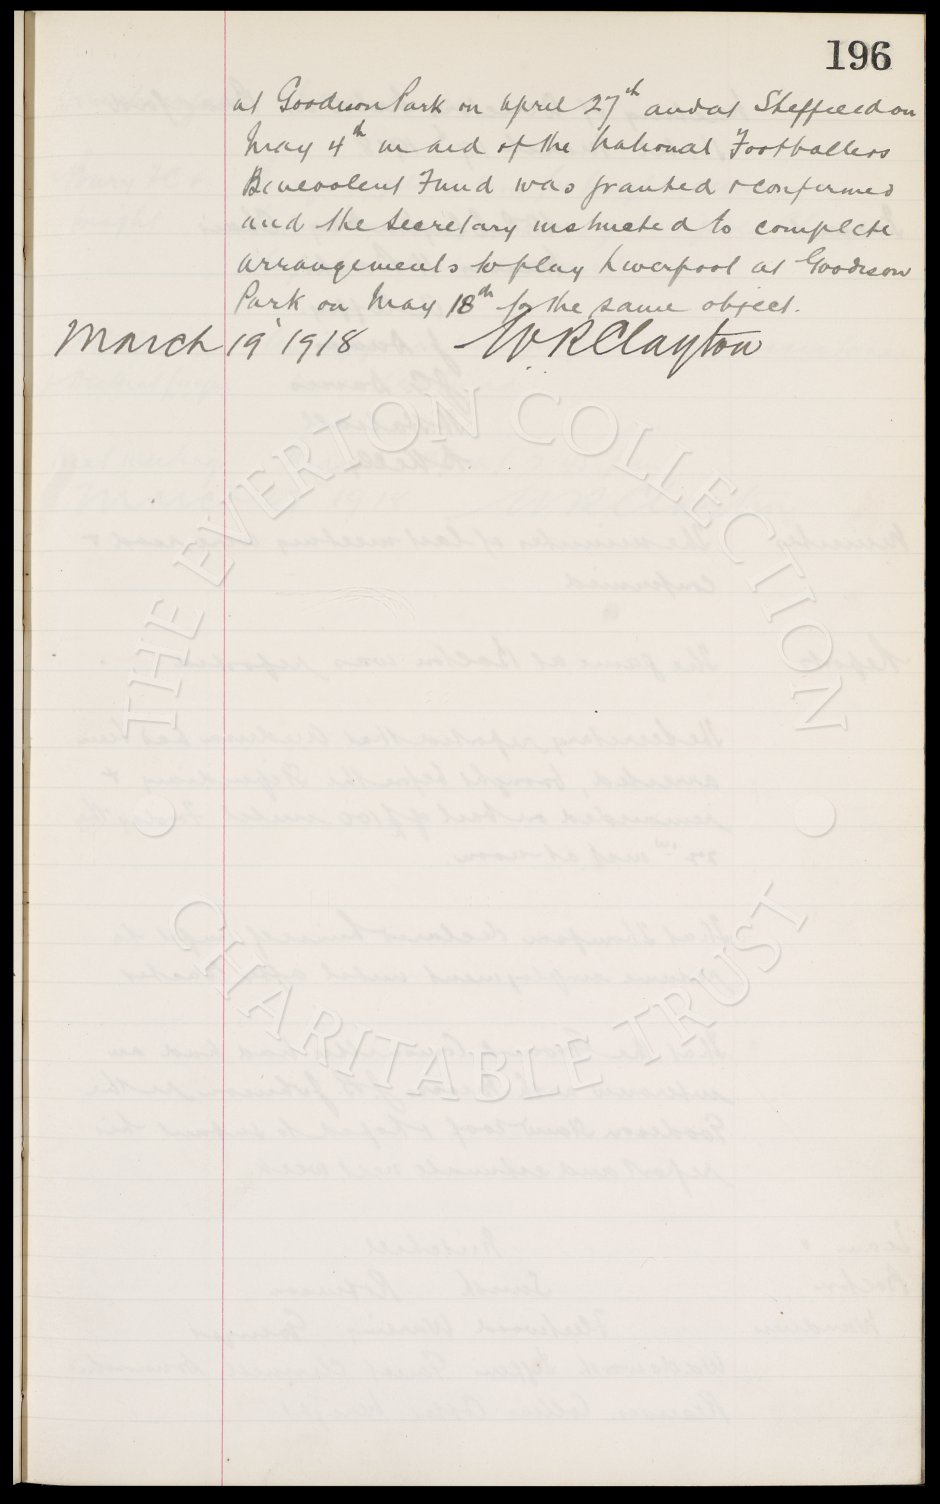 196
at Goodison Park on April 27th and at Sheffield on
May 4th in aid of the National Footballers
Benevolent Fund was granted & confirmed
and the Secretary instructed to complete
arrangements to play Liverpool at Goodison
Park on May 18th for the same object.
March 19 1918 W R Clayton
THE EVERTON COLLECTION
CHARITABLE TRUST